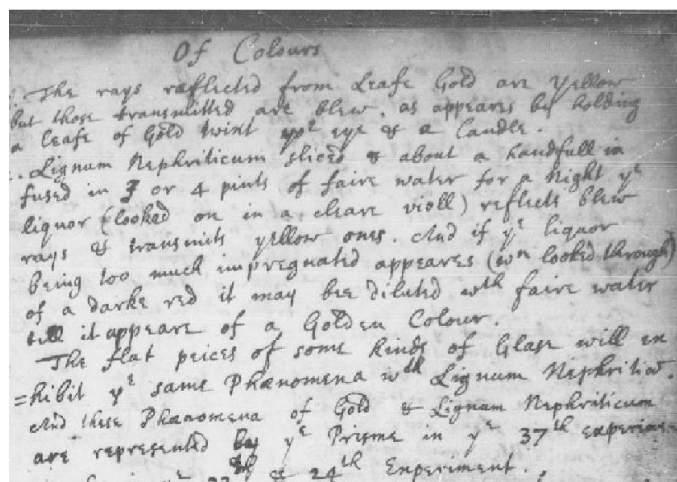 Of Colours
The rays reflected from Leafe Gold are yellow
but those transmitted are blew, as appears by holding
a leafe of Gold twixt yor eye & a Candle.
Lignum Nephriticum sliced & about a handfull in
fused in 3 or 4 pints of faire water for a night ye
liquor (looked on in a cleare violl) reflects blew
rays & transmits yellow ones. And if ye liquor
being too much impregnated appeares (wn looked through)
of a darke red it may bee diluted wth faire water
till it appeare of a Golden Colour.
The flat peices of some kinds of Glase will ex
=hibit ye same Phænomena wth Lignum Nephritic̄.
And these Phænomena of Gold & Lignum Nephriticum
are represented by ye Prisme in ye 37th experimen
& 24th Experiment.